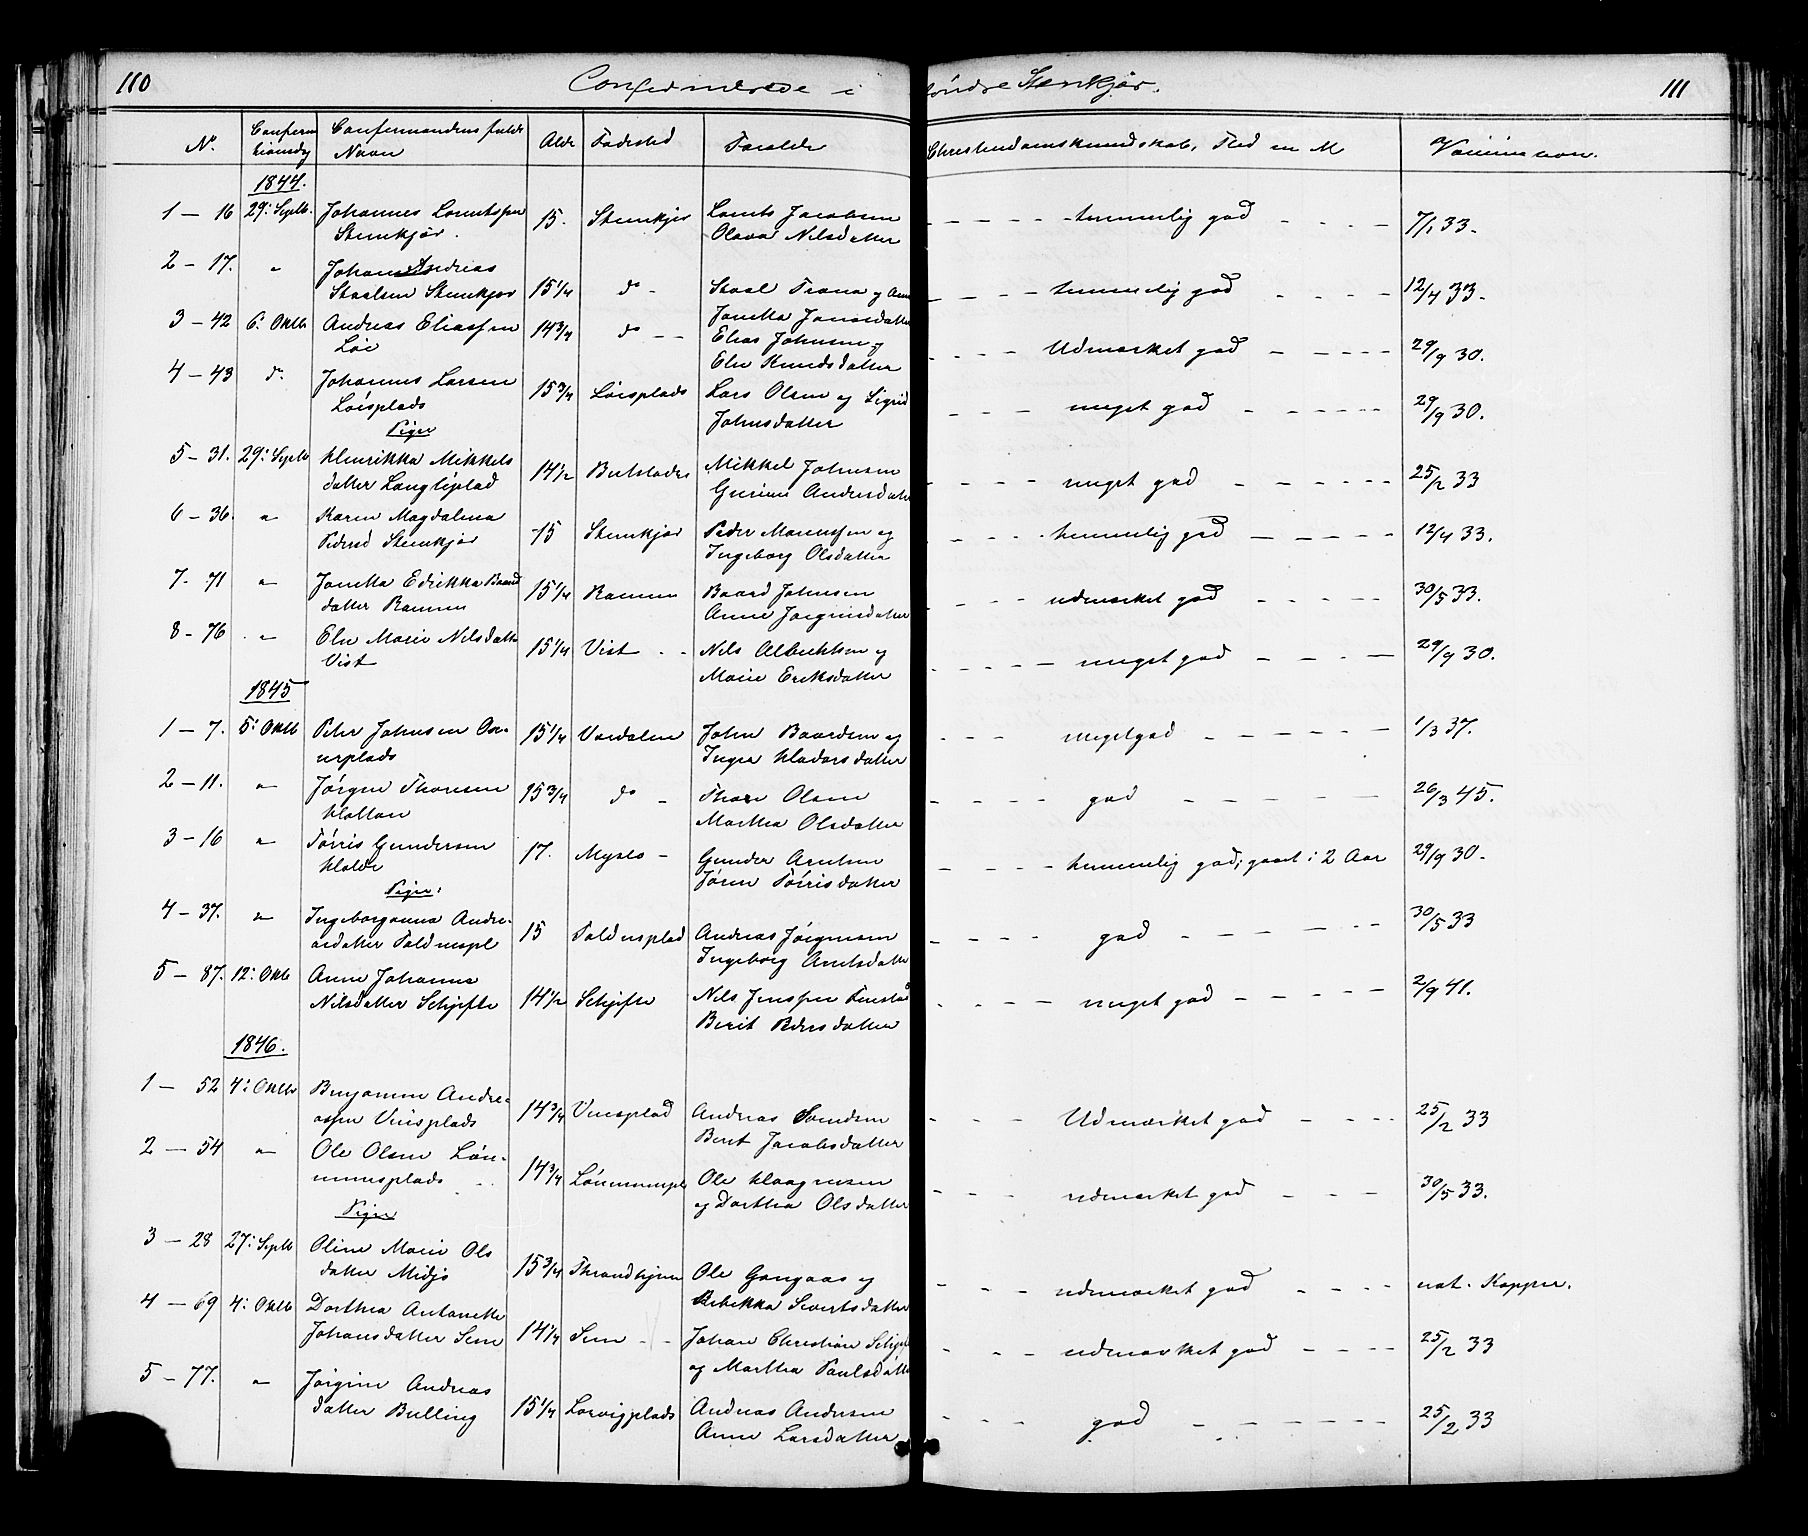 110 Confirmerede i Söndre Stenkjær. 111
N. Confirmationsdag Confirmandens fulde Navn Alder Fødested Forældre Christendomskundskab, Flid en M Vaccination.
1844.
1 – 16 29: Septb. Johannes Lorentsen 15. Stenkjær Lorents Jacobsen – – – – temmelig god – – – 7/1 33.
Stenkjær. Olava Nilsdatter
2 – 17. " Johan Andreas
Staalsen Stenkjær 15 1/4 do – Staal Trana og Anne – – – – temmelig god – – – – 12/4 33.
3 – 42 6: Oktb. Andreas Eliassen 14 3/4 do – – Jonetta Jonasdatter
Løe Elias Johnsen og – – – Udmærket god – – – – – 29/9 30.
4 – 43 do Johannes Larsen Elen Knudsdatter
Løeplads 15 3/4 Løeplads Lars Olsen og Sigrid – – – meget god – – – – – 29/9 30.
Piger Johnsdatter
5 – 31. 29: Septb. Henrikka Mikkels 14 1/2 Beitstaden Mikkel Johnsen – – – – meget god – – – – – 25/2 33
datter Langliplad Gurine Andersdatter
6 – 36. " Karen Magdalena
Pedersd Stenkjær 15 Stenkjær Peder Morentsen og – – – – temmelig god – – – – – 12/4 33.
Ingeborg Olsdatter
7. 71 " Jonetta Edrikka Baard 15 1/4 Ramem Baard Johnsen – – – udmærket god – – – – – 30/5 33.
datter Ramem Anne Jørginsdatter
8 – 76 " Elen Marie Nilsdatter 15 1/4 Vist – – Nils Albrektsen og – – – – meget god – – – – 29/9 30.
Vist Marie Eriksdatter
1845
1 – 7. 5: Oktb Peter Johnsen 15 1/4 Værdalen John Baardsen og – – – megetgod – – – – – – 1/3 37.
erplads Ingea Haldorsdatter
2 – 11. " Jørgen Thoresen 15 3/4 do – Thore Olsen – – – – god – – – – – – 26/3 45.
Hattan Martha Olsdatter
3 – 16 " Tørris Gundersen
Halde 17. – Gunder Arntsen – – – – temmelig god, gaaet i 2 Aar 29/9 30.
Piger: Jøren Tørrisdatter
4 – 37. " Ingeborganna Andre-
asdatter Foldenspl 15 Foldensplad Andreas Jørgensen – – – – god – – – – – – 30/5 33
Ingeborg Arntsdatter
5 – 87. 12: Oktb Anne Johanna
Nilsdatter Schjefte 14 1/2 Schjefte Nils Jenssen – – – – meget god – – – – – 2/9 41.
Berit Pedersdatter
1846.
1 – 52 4: Oktb Benjamin Andre-
assen Viusplads 14 3/4 Viusplad Andreas Svendsen – – – Udmærket god – – – – 25/2 33
Berit Jacobsdatter
2 – 54 " Ole Olsen Løn-
nemsplads 14 3/4 Lønnemspl Ole Haagensen – – – udmærket god – – – 30/5 33.
Piger og Dorthea Olsdatter
3 – 28 27: Septb Oline Marie Ols
datter Midjo 15 3/4 Throndhjem Ole Gangaas og – – udmærket god – – – – nat. Kopper.
4 – 69 4: Oktb Dorthea Antonette Rebekka Sivertsdatter
Johansdatter Sem 14 1/4 Sem – – Johan Christian – – – udmærket god – – – – 25/2 33
og Martha Paulsdatter
5 – 77. " Jørgine Andreas
datter Bulling 15 1/4 Larvigplads Andreas Andersen – – – god – – – – – – 25/2 33
Anne Larsdatter